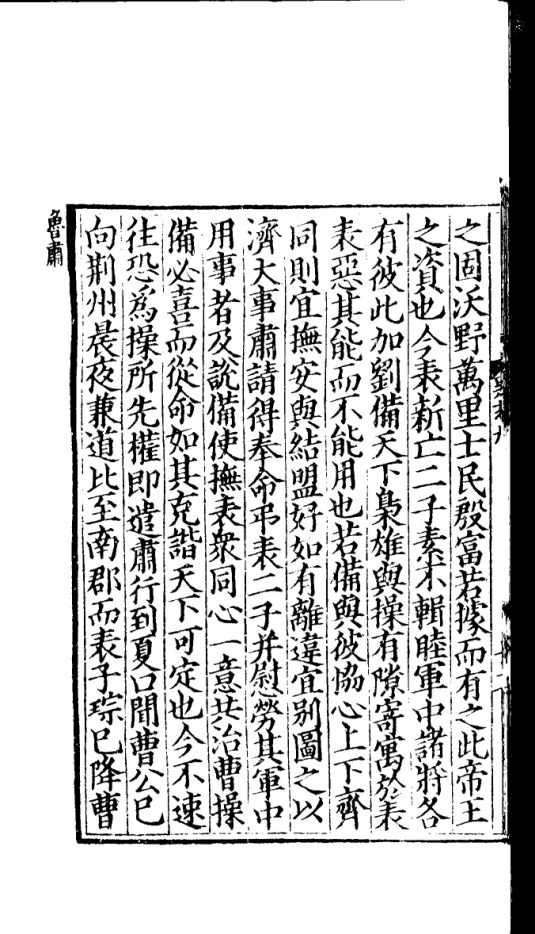 之固沃野萬里士民殷富若據而有之此帝王
之資也今表新亡二子素不輯睦軍中諸將各
有彼此加劉備天下梟雄與操有隙寄寓於表
表惡其能而不能用也若備與彼恊心上下齊
同則宜撫安與結盟好如有離違宜别圖之以
濟大事肅請得奉命弔表二子并慰勞其軍中
用事者及說備使撫表衆同心一意共治曹操
備必喜而從命如其克諧天下可定也今不速
往恐爲操所先權即遣肅行到夏口聞曹公已
向荆州晨夜兼道比至南郡而表子琮已降曹
魯肅